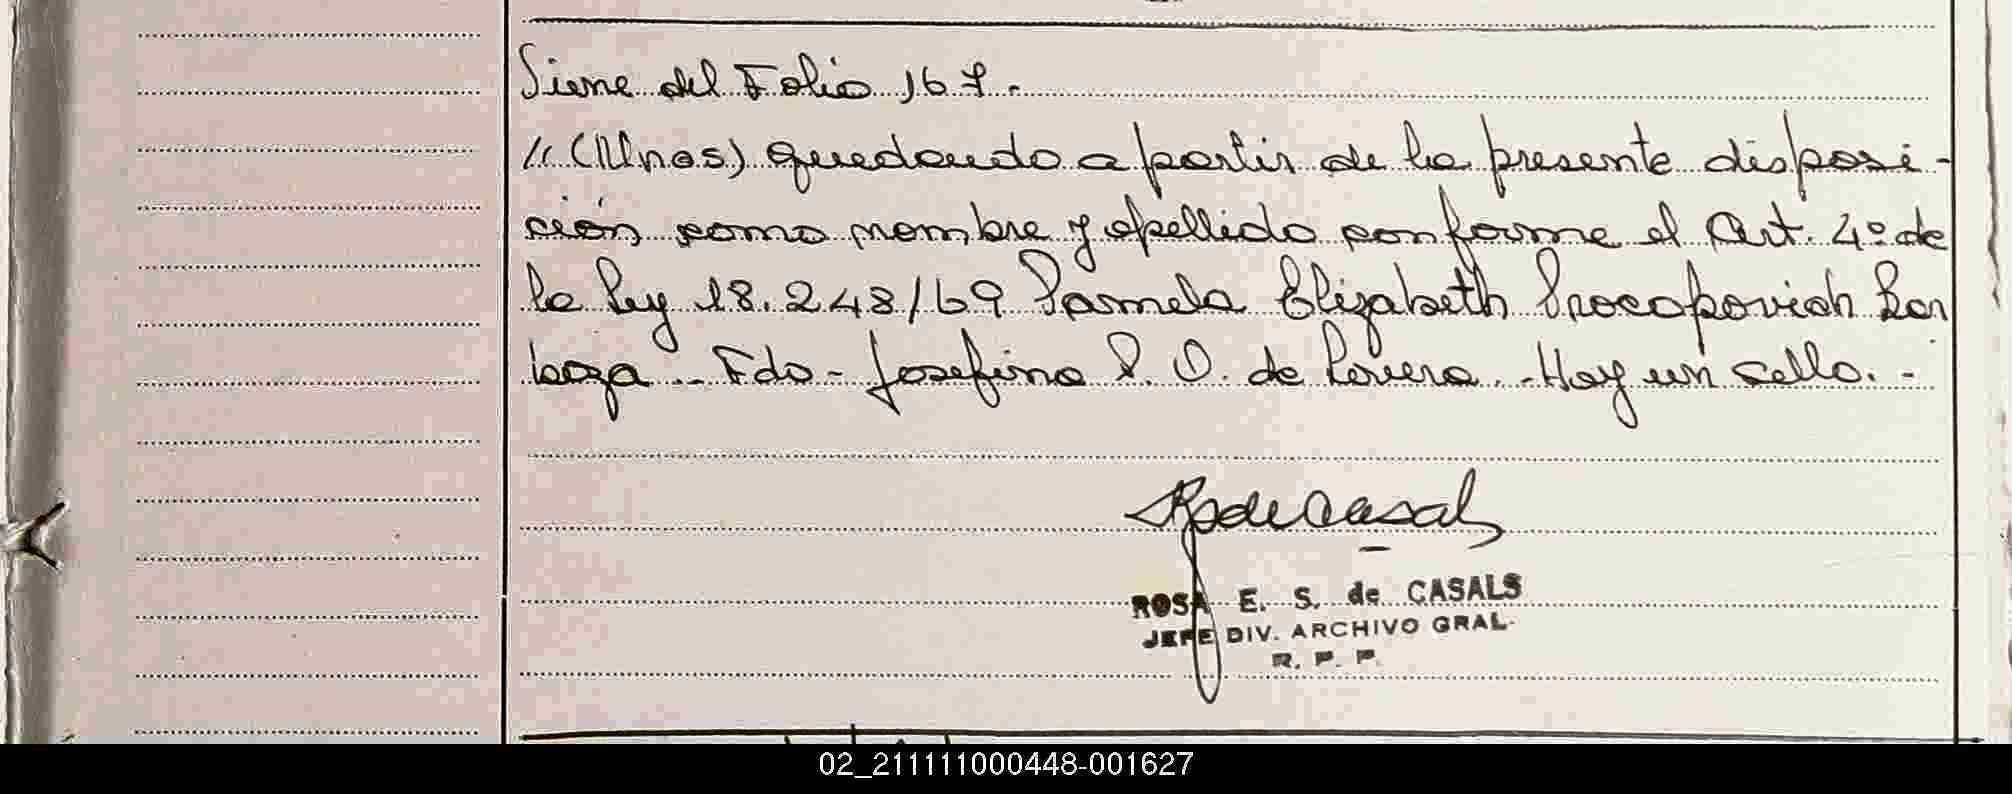 Viene del Folio 167.
// (Unos) quedando a partir de la presente disposi-
ción como nombre y apellido conforme el Art. 4º de
la ley 18.248/69 Pamela Elizabeth Procopovich Bar
boza.. Fdo- Josefina P. O. de Lovera. -Hay un sello. -
RosdeCasals
ROSA E. S. de CASALS
JEFE DIV. ARCHIVO GRAL.
R. P. P.
02_211111000448-001627